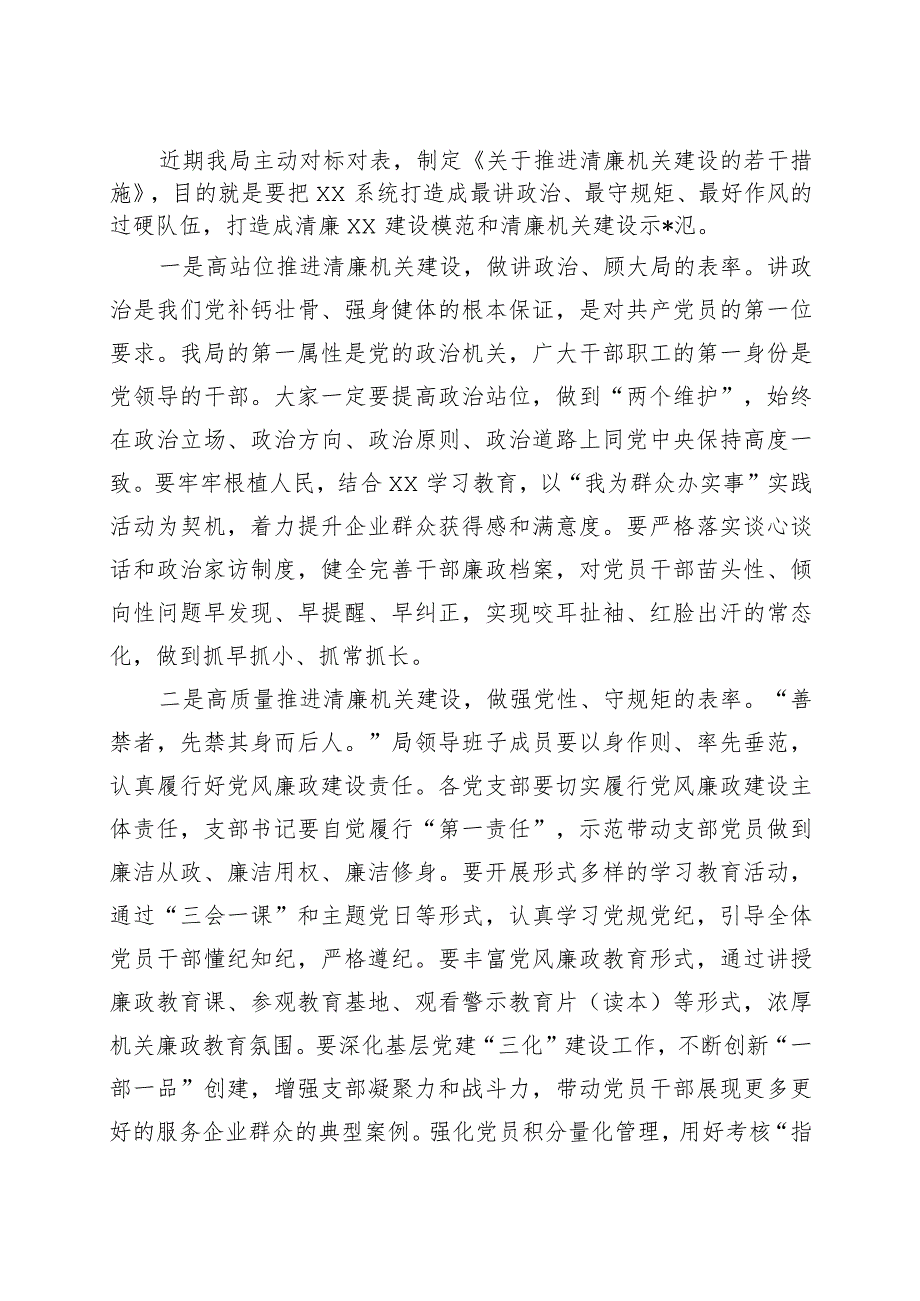 近期我局主动对标对表，制定《关于推进清廉机关建设的若干措
施》，目的就是要把 XX 系统打造成最讲政治、最守规矩、最好作风的
过硬队伍，打造成清廉 XX 建设模范和清廉机关建设示*氾。
一是高站位推进清廉机关建设，做讲政治、顾大局的表率。讲政
治是我们党补钙壮骨、强身健体的根本保证，是对共产党员的第一位
要求。我局的第一属性是党的政治机关，广大干部职工的第一身份是
党领导的干部。大家一定要提高政治站位，做到“两个维护”，始终
在政治立场、政治方向、政治原则、政治道路上同党中央保持高度一
致。要牢牢根植人民，结合 XX 学习教育，以“我为群众办实事”实践
活动为契机，着力提升企业群众获得感和满意度。要严格落实谈心谈
话和政治家访制度，健全完善干部廉政档案，对党员干部苗头性、倾
向性问题早发现、早提醒、早纠正，实现咬耳扯袖、红脸出汗的常态
化，做到抓早抓小、抓常抓长。
二是高质量推进清廉机关建设，做强党性、守规矩的表率。“善
禁者，先禁其身而后人。”局领导班子成员要以身作则、率先垂范，
认真履行好党风廉政建设责任。各党支部要切实履行党风廉政建设主
体责任，支部书记要自觉履行“第一责任”，示范带动支部党员做到
廉洁从政、廉洁用权、廉洁修身。要开展形式多样的学习教育活动，
通过“三会一课”和主题党日等形式，认真学习党规党纪，引导全体
党员干部懂纪知纪，严格遵纪。要丰富党风廉政教育形式，通过讲授
廉政教育课、参观教育基地、观看警示教育片（读本）等形式，浓厚
机关廉政教育氛围。要深化基层党建“三化”建设工作，不断创新“一
部一品”创建，增强支部凝聚力和战斗力，带动党员干部展现更多更
好的服务企业群众的典型案例。强化党员积分量化管理，用好考核“指